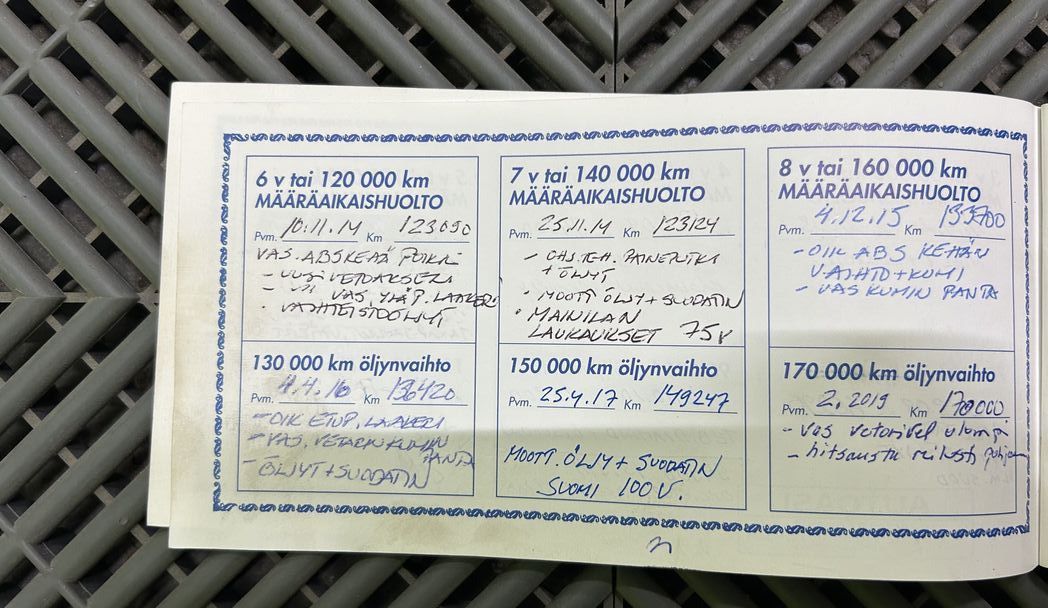 6 v tai 120 000 km
MÄÄRÄAIKAISHUOLTO
Pvm. 10.11.14 Km 123090
VAS. ABSKEHÄ POIKKI
- UUSI VETOAKSELI
- VAS. YLÄP. LAAKERI
VAIHTEISTOÖLJYT
130 000 km öljynvaihto
Pvm. 4.4.16 Km 136420
- OIK ETUP. LAAKERI
- VAS. VETARIN KUMIN
PANTA
- ÖLJYT + SUODATIN
7 v tai 140 000 km
MÄÄRÄAIKAISHUOLTO
Pvm. 25.11.14 Km 123124
- OHJ. TEH. PAINEPUTKI
+ ÖLJYT
• MOOTT ÖLJY + SUODATIN
• MAINILAN
LAUKAUKSET 75v
150 000 km öljynvaihto
Pvm. 25.4.17 Km 149247
MOOTT. ÖLJY + SUODATIN
SUOMI 100 V.
8 v tai 160 000 km
MÄÄRÄAIKAISHUOLTO
Pvm. 4.12.15 Km
- OIK ABS KEHÄN
VAIHTO + KUMI
- VAS KUMIN PANTA
170 000 km öljynvaihto
Pvm. 2.2019 Km 170000
- vas vetonivel ulompi
- hitsausta reilusti